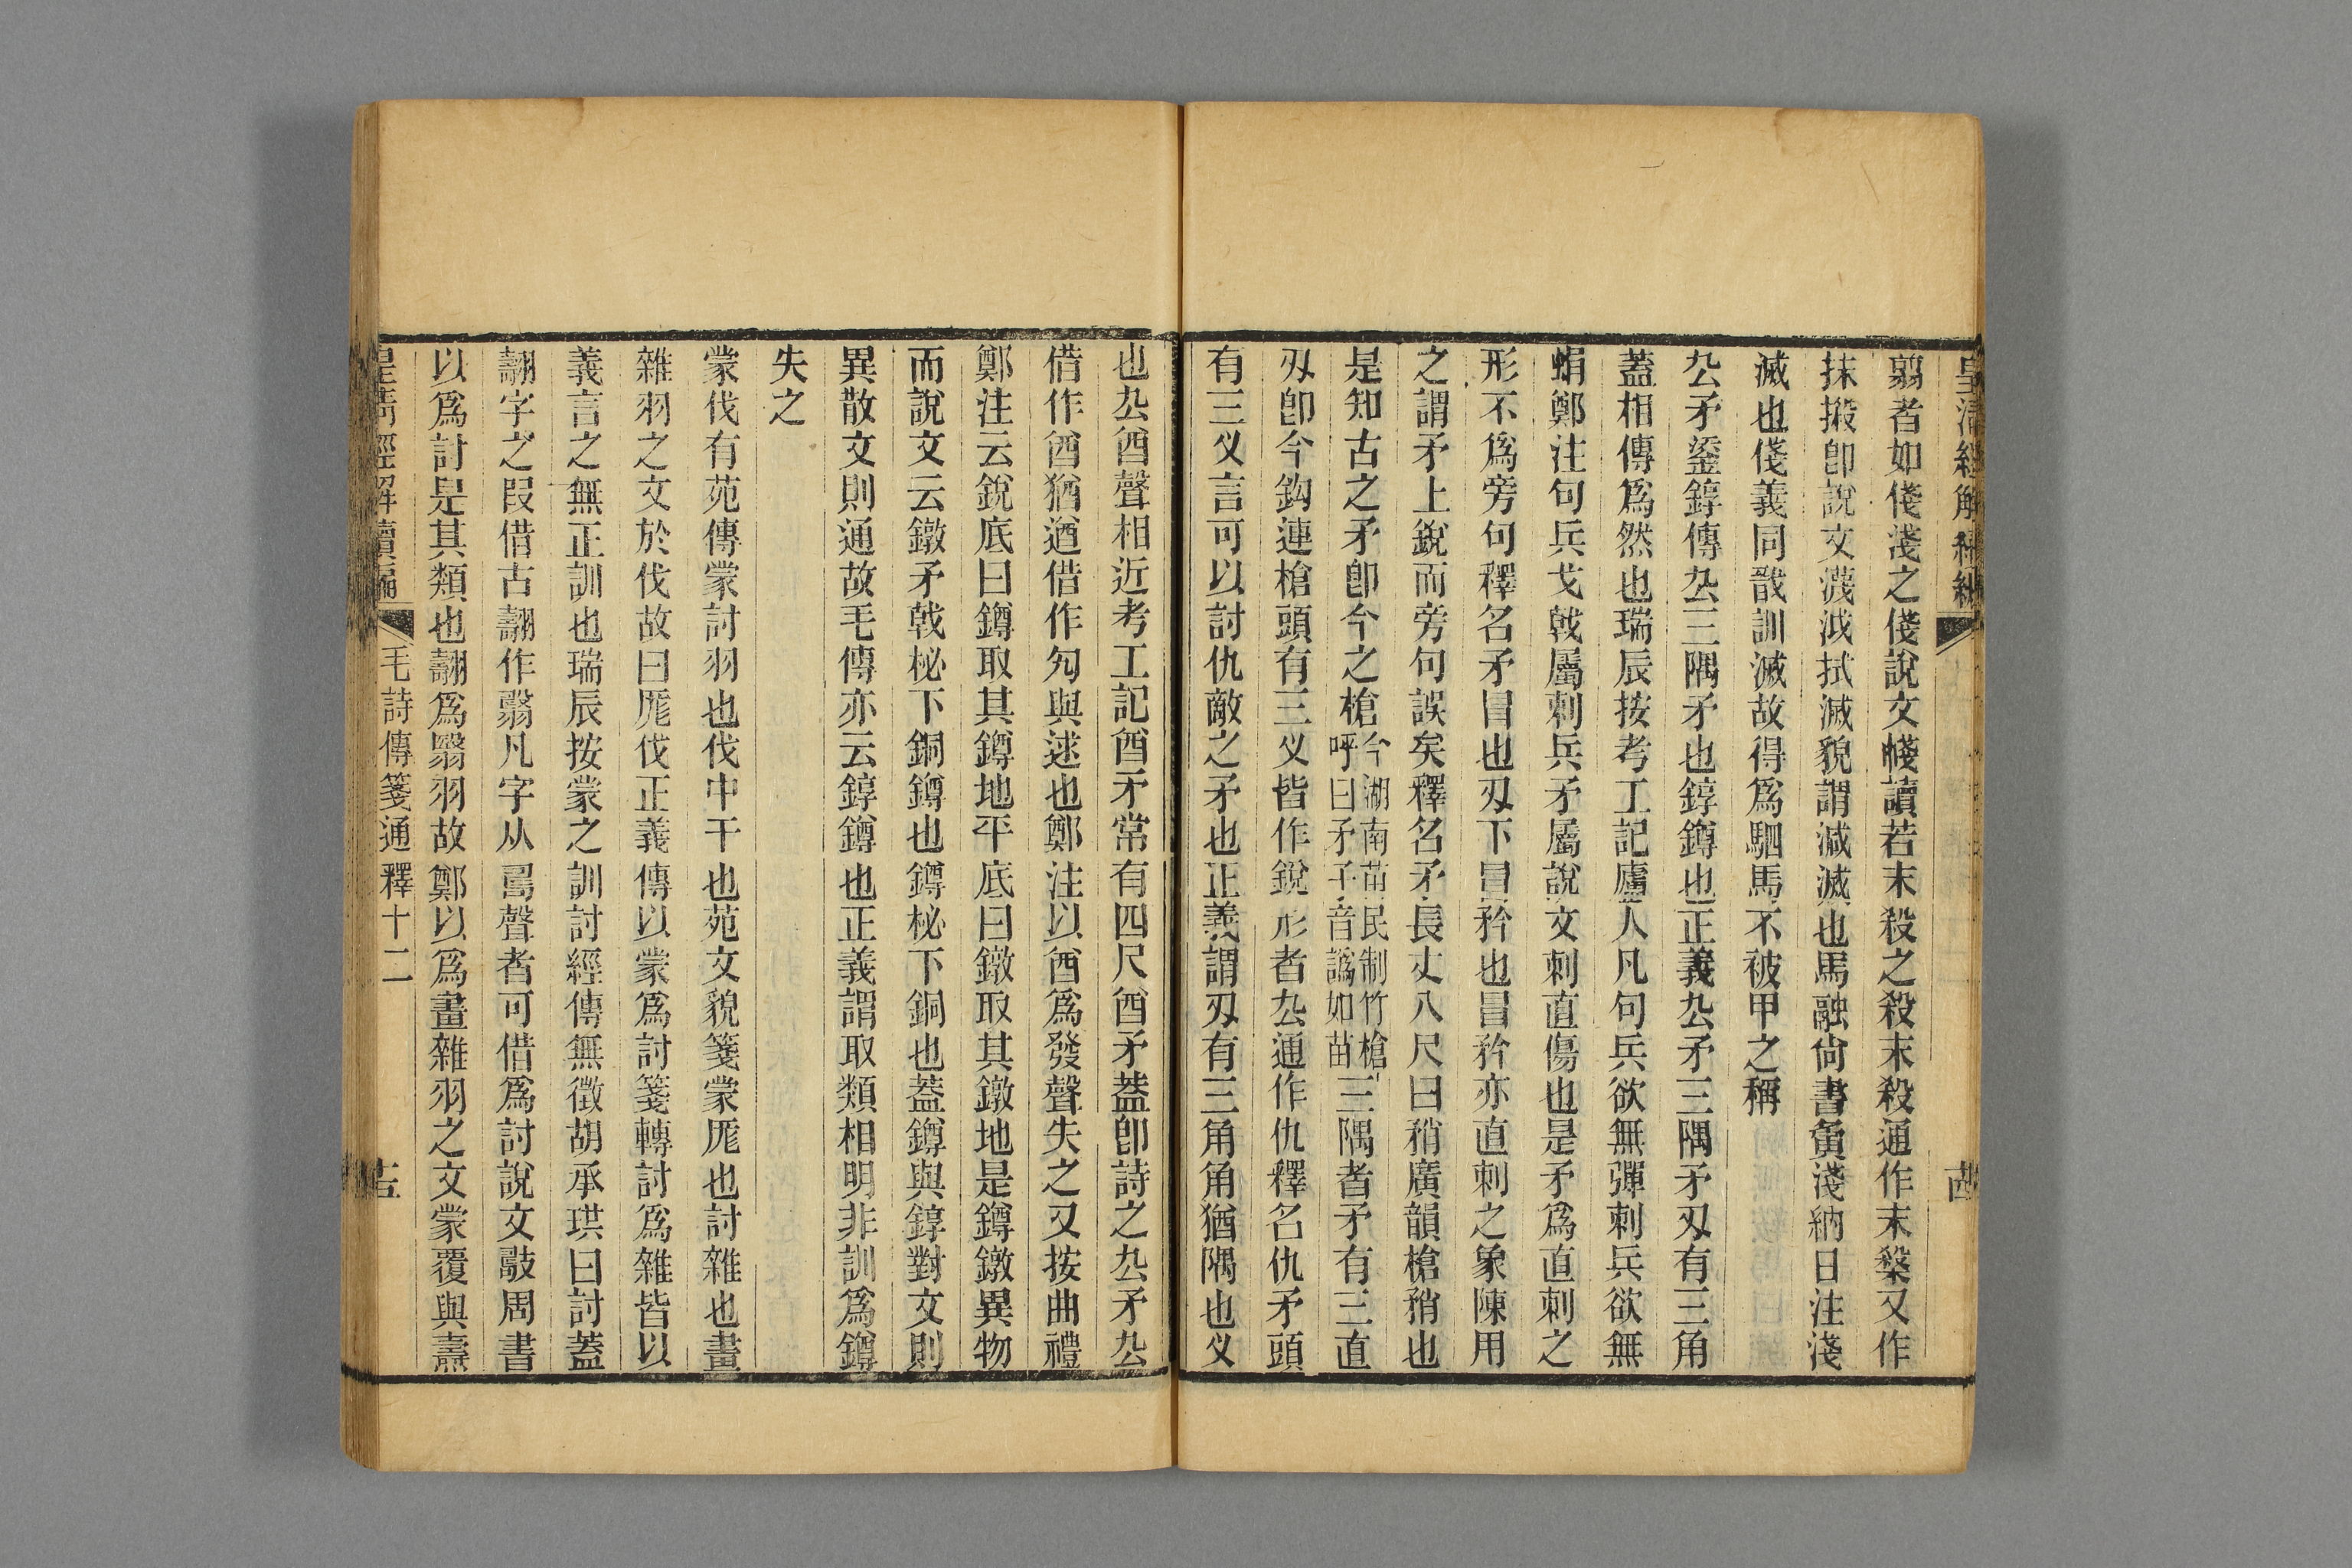 皇清經解續編
翦者如俴淺之俴說文幭讀若末殺之殺末殺通作末槃又作
抹摋卽說文𤁲泧拭滅貌謂滅滅也馬融尙書夤淺納日注淺
滅也俴義同戩訓滅故得爲駟馬不被甲之稱
厹矛鋈錞傳厹三隅矛也錞鐏也正義厹矛三隅矛刃有三角
蓋相傳爲然也瑞辰按考工記廬人凡句兵欲無彈刺兵欲無
蜎鄭注句兵戈戟屬刺兵矛屬說文刺直傷也是矛爲直刺之
形不爲旁句釋名矛冒也刃下冒矜也冒矜亦直刺之象陳用
之謂矛上銳而旁句誤矣釋名矛長丈八尺曰矟廣韻槍矟也
是知古之矛卽今之槍今湖南苗民制竹槍呼曰矛子音譌如苗三隅者矛有三直
刃卽今鈎連槍頭有三义皆作銳形者厹通作仇釋名仇矛頭
有三义言可以討仇敵之矛也正義謂刃有三角角猶隅也义
也厹酋聲相近考工記酋矛常有四尺酋矛葢卽詩之厹矛厹
借作酋猶遒借作勼與逑也鄭注以酋爲發聲失之又按曲禮
鄭注云銳底曰鐏取其鐏地平底曰鐓取其鐓地是鐏鐓異物
而說文云鐓矛戟柲下銅鐏也鐏柲下銅也葢鐏與錞對文則
異散文則通故毛傳亦云錞鐏也正義謂取類相明非訓爲鐏
失之
蒙伐有苑傳蒙討羽也伐中干也苑文貌箋蒙厖也討雜也畫
雜羽之文於伐故曰厖伐正義傳以蒙爲討箋轉討爲雜皆以
義言之無正訓也瑞辰按蒙之訓討經傳無徵胡承珙曰討蓋
翿字之叚借古翿作翳凡字从𠷎聲者可借爲討說文敽周書
以爲討是其類也翿爲翳羽故鄭以爲畫雜羽之文蒙覆與燾
皇清經解續編 毛詩傳箋通釋十二